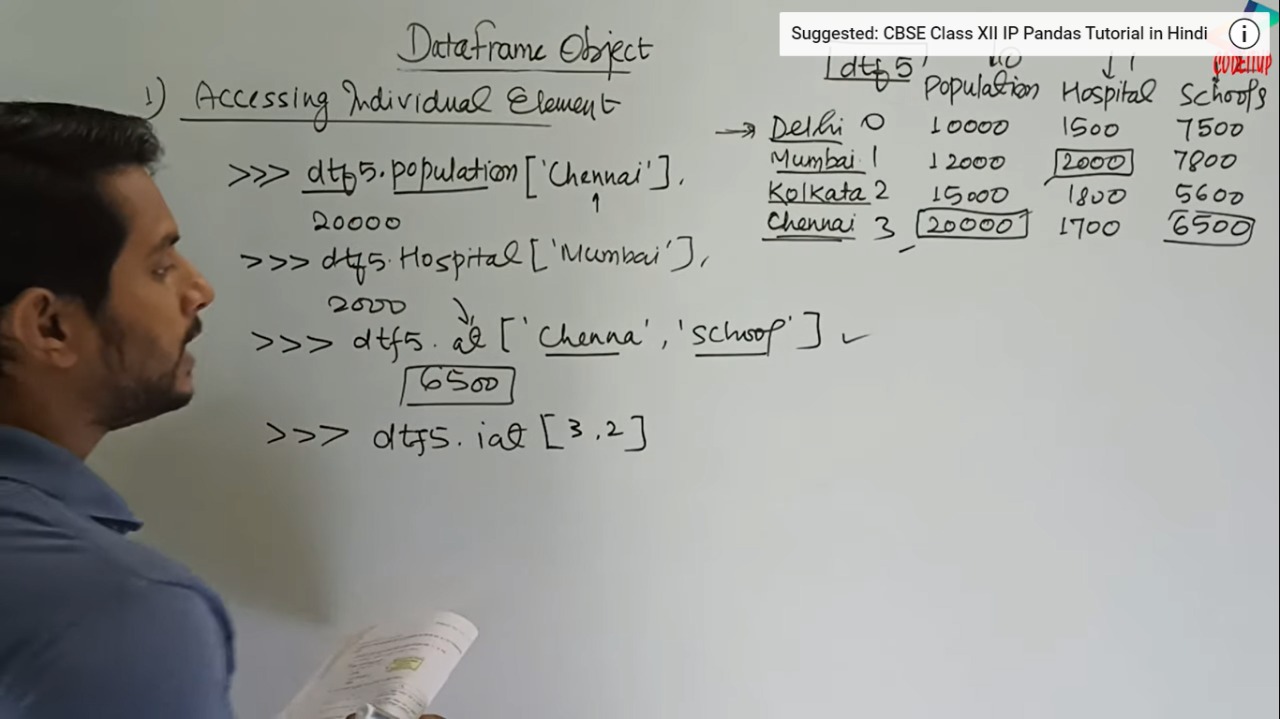 Suggested: CBSE Class XII IP Pandas Tutorial in Hindi
Dataframe Object
1) Accessing Individual Element
>>> dtf5.population['Chennai'].
20000
>>> dtf5.Hospital['Mumbai'],
2000
>>> dtf5.at['Chenna','School']
6500
>>> dtf5.iat[3,2]
dtf5
Population Hospital Schools
Delhi 0 10000 1500 7500
Mumbai 1 12000 2000 7800
Kolkata 2 15000 1800 5600
Chennai 3 20000 1700 6500